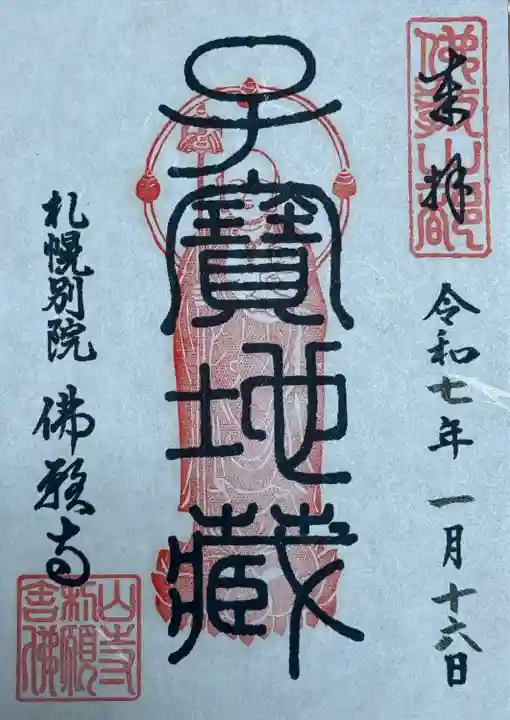 来拝
令和七年 一月十六日
子寶地藏
札幌別院 佛願寺